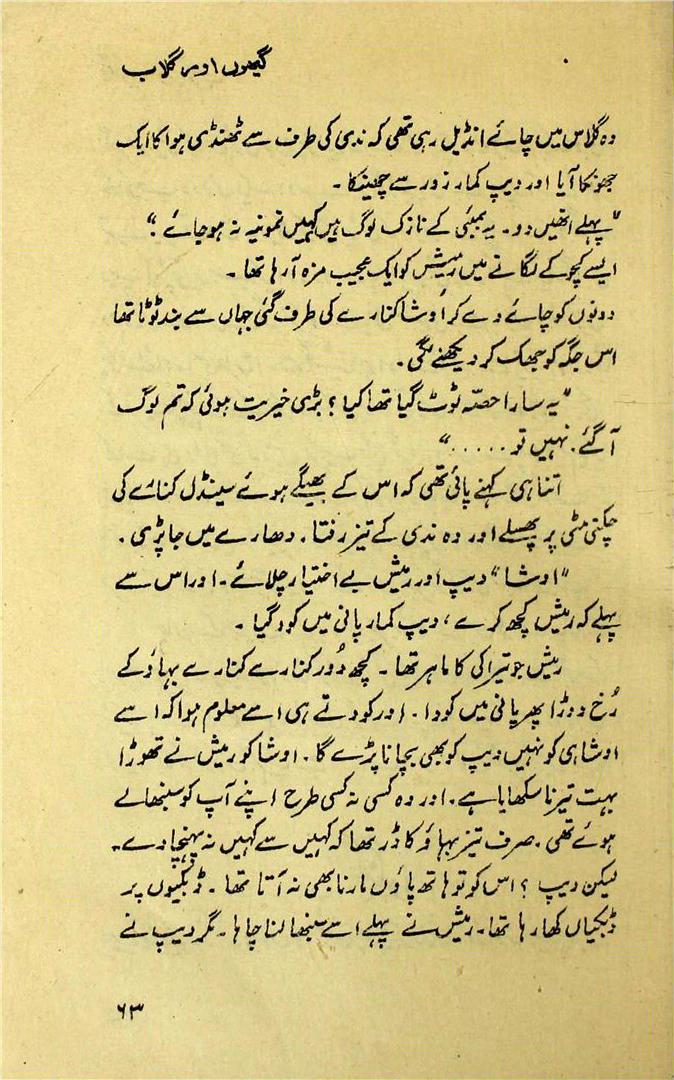 گیہوں اور گلاب
وہ گلاس میں چائے انڈیل رہی تھی کہ ندی کی طرف سے ٹھنڈی ہوا کا ایک
جھونکا آیا اور دیپ کمار زور سے چھینکا ۔
"پہلے انھیں دو۔ یہ بمبئی کے نازک لوگ ہیں کہیں نمونیہ نہ ہوجائے ؟"
ایسے کچوکے لگانے میں رمیش کو ایک عجیب مزہ آرہا تھا ۔
دونوں کو چائے دے کر اُوشا کنارے کی طرف گئی جہاں سے بند ٹوٹا تھا
اس جگہ کو جھک کر دیکھنے لگی ۔
"یہ سارا حصّہ ٹوٹ گیا تھا کیا ؟ بڑی خیریت ہوئی کہ تم لوگ
آگئے ۔ نہیں تو ....."
اتنا ہی کہنے پائی تھی کہ اس کے بھیگے ہوئے سینڈل کنارے کی
چکنی مٹی پر پھسلے اور وہ ندی کے تیز رفتا ۔ دھارے میں جا پڑی ۔
"اوشا" دیپ اور رمیش بے اختیار چلائے ۔ اور اس سے
پہلے کہ رمیش کچھ کرے ، دیپ کمار پانی میں کود گیا ۔
رمیش جو تیراکی کا ماہر تھا ۔ کچھ دُور کنارے کنارے بہاؤ کے
رُخ دوڑا پھر پانی میں کودا ۔ اور کودتے ہی اسے معلوم ہوا کہ اسے
اوشا ہی کو نہیں دیپ کو بھی بچانا پڑے گا ۔ اوشا کو رمیش نے تھوڑا
بہت تیرنا سکھایا ہے ۔ اور وہ کسی نہ کسی طرح اپنے آپ کو سنبھالے
ہوئے تھی ۔ صرف تیز بہاؤ کا ڈر تھا کہ کہیں سے کہیں نہ پہنچا دے ۔
لیکن دیپ ؟ اس کو تو ہاتھ پاؤں مارنا بھی نہ آتا تھا ۔ ڈبکیوں پر
ڈبکیاں کھا رہا تھا ۔ رمیش نے پہلے اسے سنبھالنا چاہا ۔ مگر دیپ نے
۶۳